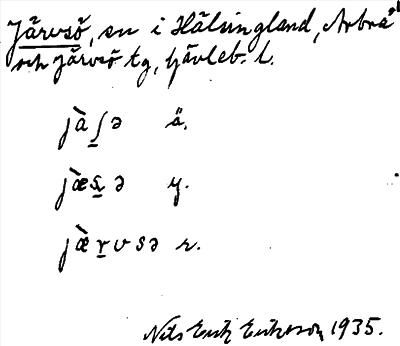 Järvsö, sn i Hälsingland, Arbrå
och Järvsö tg, Gävleb. l.
jàʃ̱ə ä.
jæ̀s̱ə y.
jæ̀ṟvsə r.
Nils Erik Eriksson 1935.